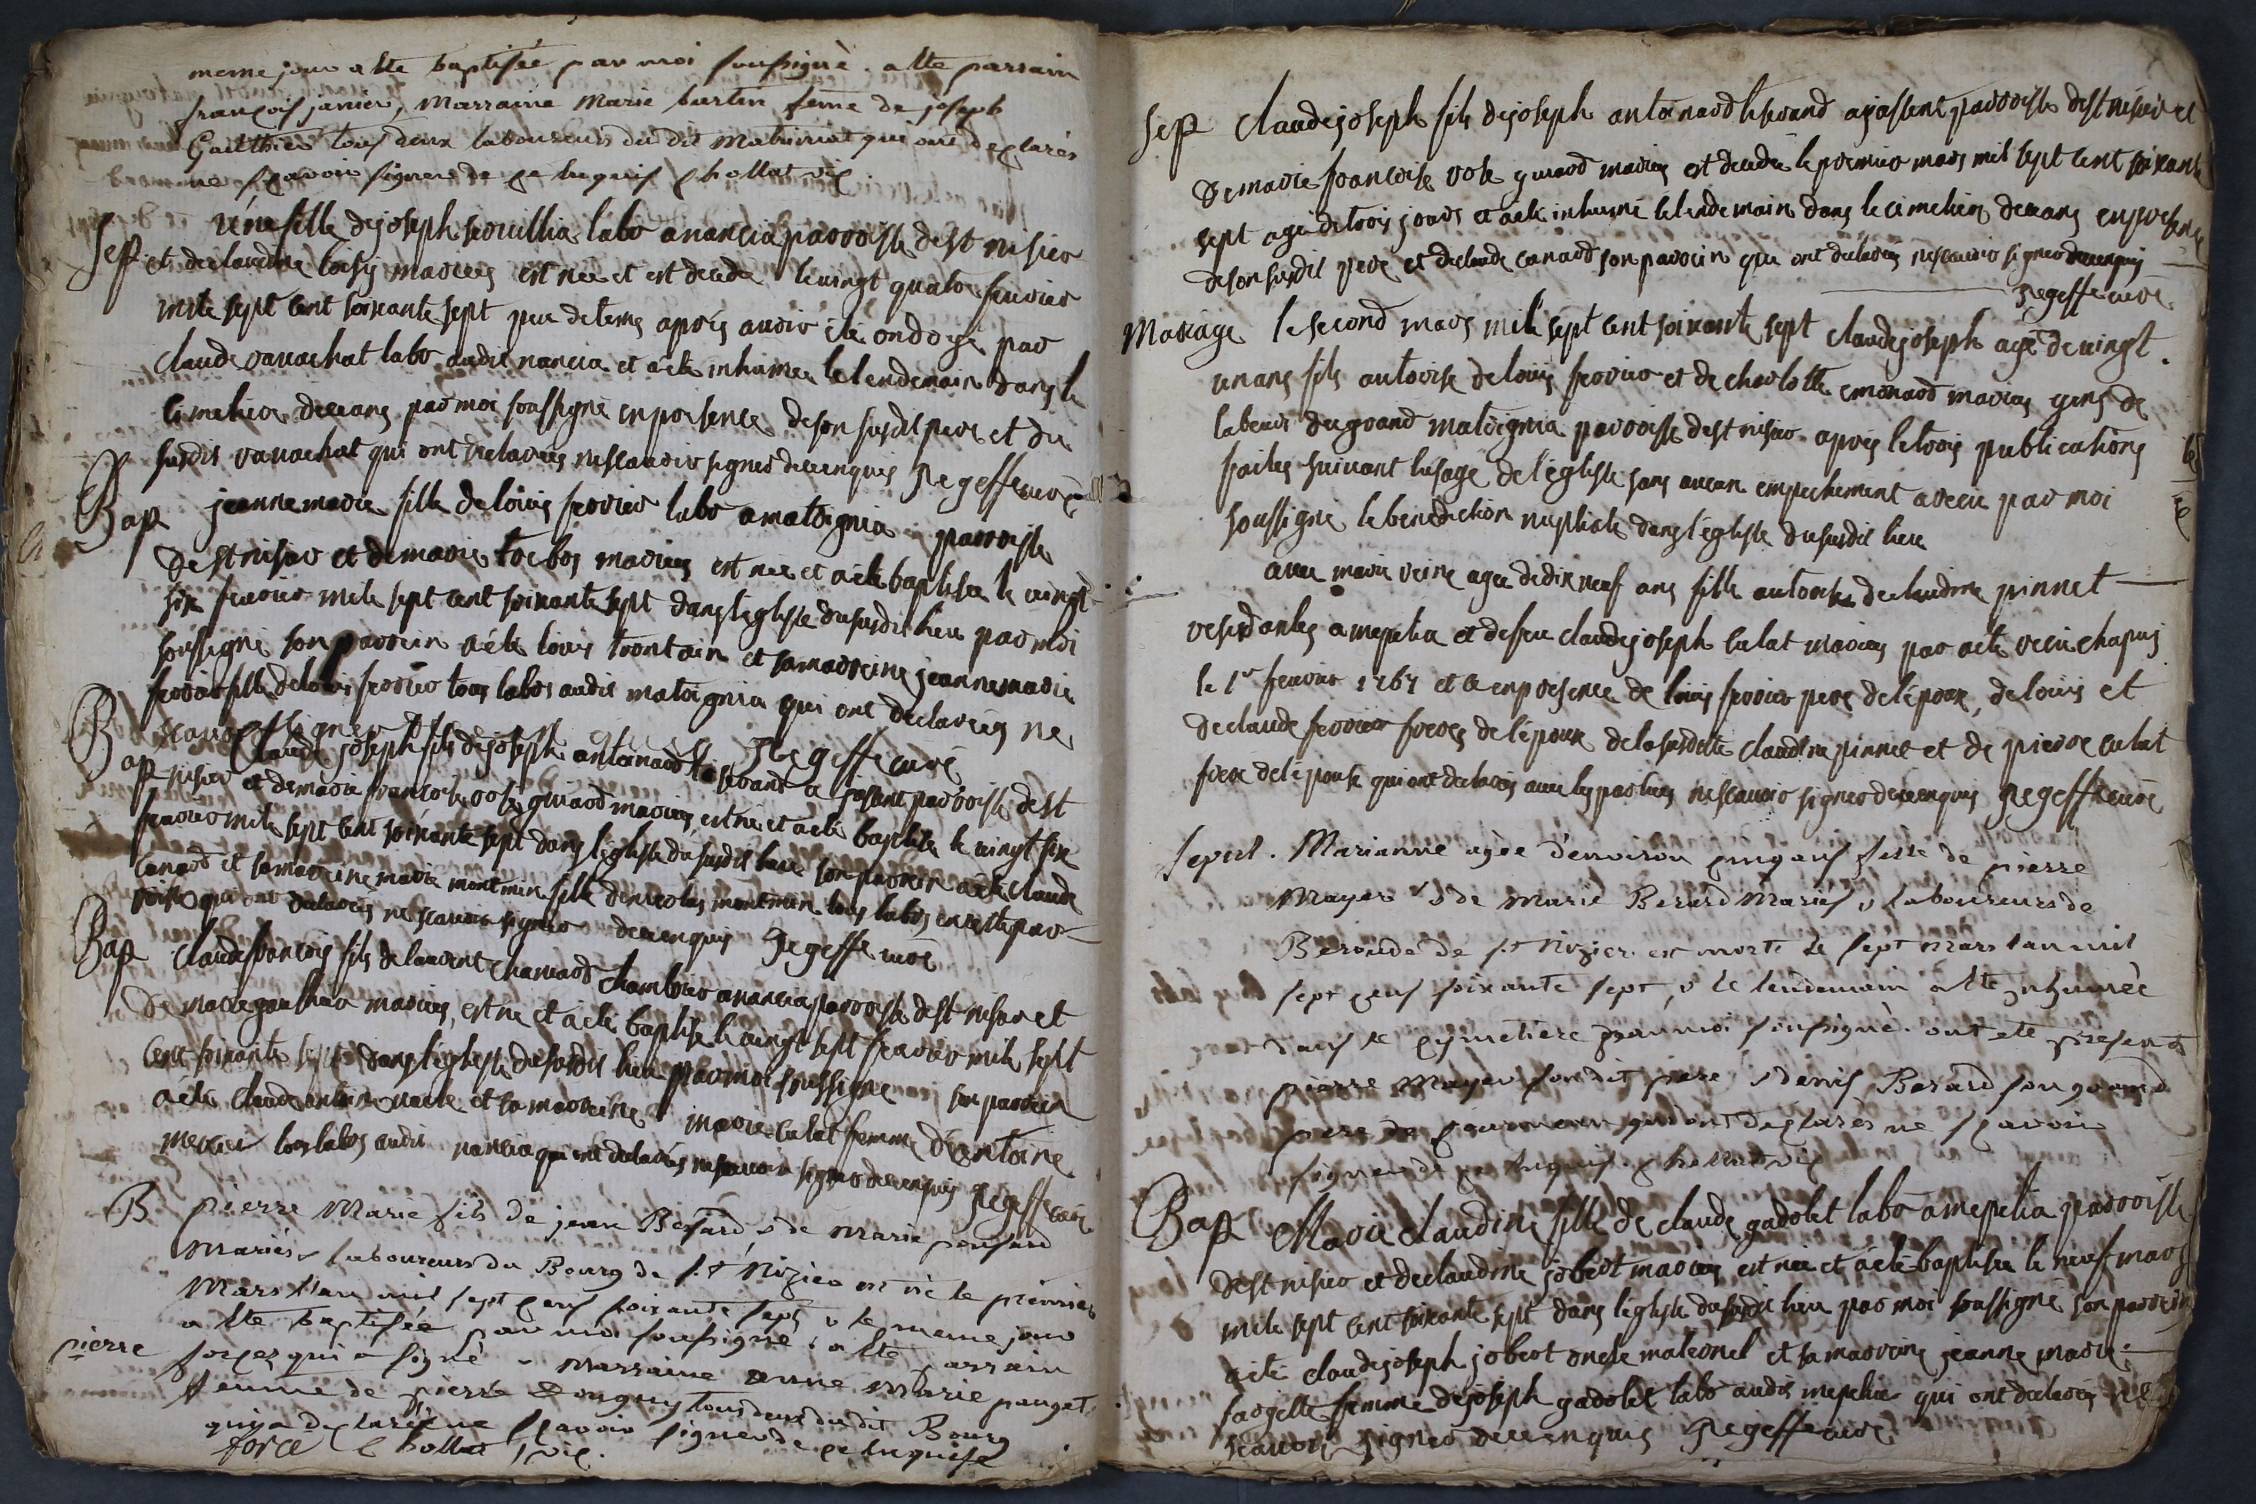 meme jour a ete baptisée par moi soussigné. a ete parrain
françois janier, Marraine Marie burtin feme de joseph
Gauthier tous deux laboureurs du dit Matuiriat qui ont declarés
ne sçavoir signer de ce enquis Chollat vic.
Sep réné fille de joseph feouillia labo a nancia parroisse de st nisier
et de claudine loisy mariées est née et est decede le vingt quatre fevrier
mile sept cent soixante sept peu detems après avoir été ondoyé par
claude vauachat labo audit nancia et a été inhumee le lendemain dans le
cimetiere de ceans par moi soussigné en presence de son susdit pere et du
susdit vauachat qui ont declarées nescavoir signer de ce enquis Regeffe curé
Bap jeanne marie fille de louis ferrier labo a matoignia parroisse
de st nisier et de marie torbos mariées est née et a été baptisée le vingt
six fevrier mile sept cent soixante sept dans l'eglise du susdit lieu par moi
soussigné son parrein a été louis trontain et sa marreine jeanne marie
ferrier fille de louis ferrier tous labos audit matoignia qui ont declarées ne
scavoir signer Regeffe curé
Bap Claude joseph fils de joseph antoinard tisserand a jassent parroisse de st
nisier et de marie francoise rose guirard mariées, est né et a été baptisé le vingt six
fevrier mile sept cent soixante sept dans l'eglise du susdit lieu son parrein a été claude
canard et sa marreine marie montmin fille de nicolas montmin tous labos en cette par
roisse qui ont declarées ne scavoir signer de ce enquis Regeffe curé
Bap claude francois fils de laurent charnard chambrier a nancia parroisse de st nisier et
de marie gauthier mariées, est né et a été baptisé le vingt sept fevrier mile sept
cent soixante sept dans l'eglise du susdit lieu par moi soussigné son parrein
a été claude antoine vacle et sa marreine marie culat femme d'antoine
mercier tous labos audit nancia qui ont declarés nescavoir signer de ce enquis Regeffe curé
B pierre Marie fils de jean Besard & de Marie ponsard
Mariés laboureurs du Bourg de St Nizier est né le premier
Mars l'an mil sept cens soixante sept & le meme jour
a ete baptisée par moi soussigné. a ete parrain
pierre forcez qui a signé & Marraine anne Marie pauget
femme de pierre Donguy tous deux du dit Bourg
qui a declaré ne sçavoir signer de ce enquise
force Chollat vic.
Sep claude joseph fils de joseph antoinard tisserand a jassent parroisse de st nisier et
de marie francoise rose guirard mariées est decedée le premier mars mil sept cent soixante
sept agé de trois jours et a été inhumé le lendemain dans le cimetiere de ceans en presence
de son susdit pere et de claude canard son parrein qui ont declarées nescavoir signer de ce enquis
Regeffe curé.
Mariage le second mars mile sept cent soixante sept claude joseph agé de vingt
un ans fils autorisé de louis ferrier et de charlotte emonard mariées gens de
labeur du grand matoignia parroisse de st nisier après le trois publications
faites suivant l'usage de l'église sans aucun empechement a receu par moi
soussigné le benediction nuptiale dans l'eglise du susdit lieu
avec marie reine agée de dix neuf ans fille autorisée de claudine pinnet
residantes a mepelia et de feu claude joseph culat mariées par acte receu chapuis
le 1er fevrier 1767 et ce en presence de louis ferrier pere de l'epoux, de louis et
de claude ferrier freres de l'époux de la susdite claudine pinnet et de pierre culat
frere de l'épouse qui ont declarées avec les parties nescavoir signer de ce enquis Regeffe curé
Sepul. Marianne agée d'environ cinq ans fille de pierre
Mayer & de Marie Berard Mariés, laboureurs de
Beroude de St Nizier est morte le sept mars l'an mil
sept cens soixante sept, & le lendemain a ete inhumée
dans le cymetiere par moi soussigné. ont ete presents
pierre Mayer son dit pere & denis Berard son grand
pere qui ont declarés ne sçavoir
signer de ce enquis. Chollat vic
Bap Marie claudine fille de claude gadolet labo a mepelia parroisse
de st nisier et de claudine jobert mariées est née et a été baptisée le neuf mars
mile sept cent soixante sept dans l'eglise du susdit lieu par moi soussigné son parrein
a été claude joseph jobert oncle maternel et sa marreine jeanne marie
fargette femme de joseph gadolet labo audit mepelia qui ont declarées ne
scavoir signer de ce enquis Regeffe curé